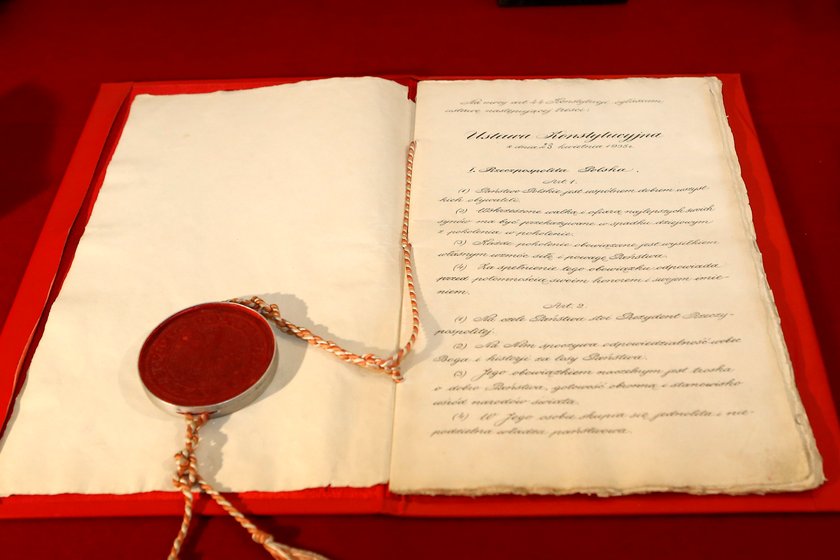 Na mocy art. 44 Konstytucji ogłaszam
ustawę następującej treści:
Ustawa Konstytucyjna
z dnia 23 kwietnia 1935 r.
I. Rzeczpospolita Polska.
Art. 1.
(1) Państwo Polskie jest wspólnem dobrem wszyst-
kich obywateli.
(2) Wskrzeszone walką i ofiarą najlepszych swoich
synów ma być przekazywane w spadku dziejowym
z pokolenia w pokolenie.
(3) Każde pokolenie obowiązane jest wysiłkiem
własnym wzmóc siłę i powagę Państwa.
(4) Za spełnienie tego obowiązku odpowiada
przed potomnością swoim honorem i swojem imie-
niem.
Art. 2.
(1) Na czele Państwa stoi Prezydent Rzeczy-
pospolitej.
(2) Na Nim spoczywa odpowiedzialność wobec
Boga i historji za losy Państwa.
(3) Jego obowiązkiem naczelnym jest troska
o dobro Państwa, gotowość obronną i stanowisko
wśród narodów świata.
(4) W Jego osobie skupia się jednolita i nie-
podzielna władza państwowa.